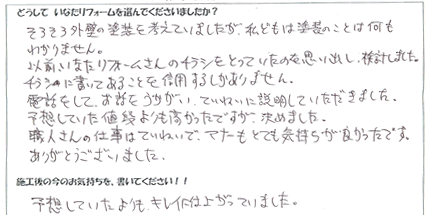 どうして いなだリフォームを選んでくださいましたか？
そろそろ外壁の塗装を考えていましたが、私どもは塗装のことは何も
わかりません。
以前いなだリフォームさんのチラシをとっていたのを思い出し、検討しました。
チラシに書いてあることを信用するしかありません。
電話をして、お話をうかがい、ていねいに説明していただきました。
予想していた値段よりも高かったですが、決めました。
職人さんの仕事はていねいで、マナーもとても気持ちが良かったです。
ありがとうございました。
施工後の今のお気持ちを、書いてください！！
予想していたよりも、キレイに仕上がっていました。